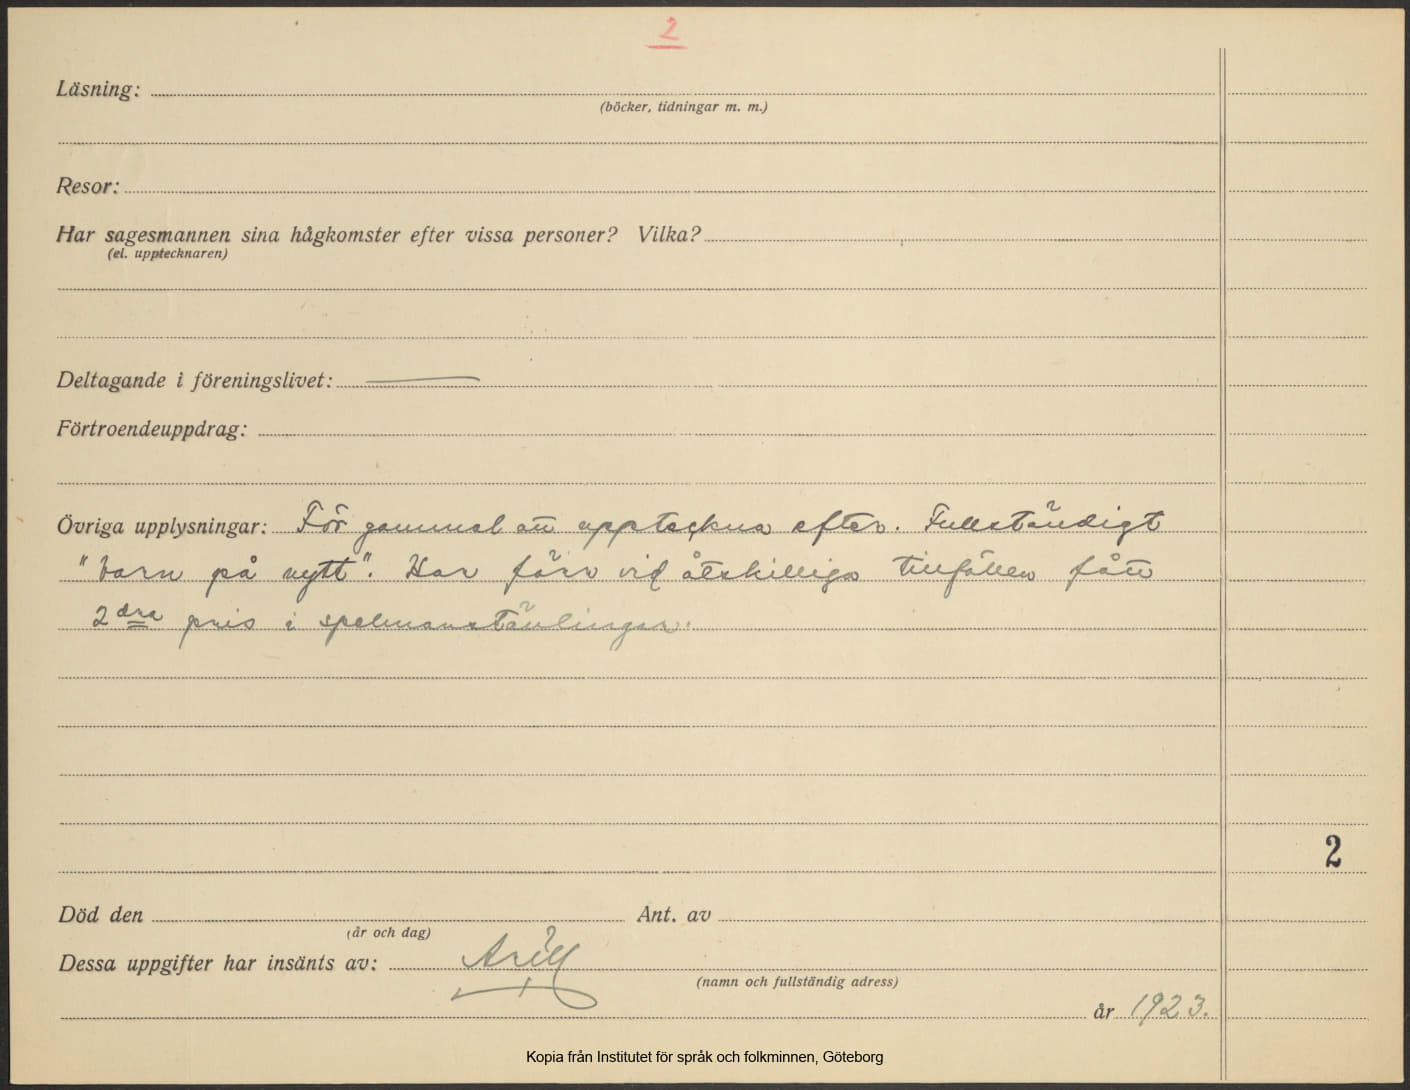 2
Läsning:
(böcker, tidningar m. m.)
Resor:
Har sagesmannen sina hågkomster efter vissa personer? Vilka?
(el. upptecknaren)
Deltagande i föreningslivet: —
Förtroendeuppdrag:
Övriga upplysningar: För gammal att uppteckna efter. Fullständigt
"barn på nytt". Har förr vid åtskilliga tillfällen fått
2dra pris i spelmanstävlingar.
2
Död den Ant. av
(år och dag)
Dessa uppgifter har insänts av: Arill
(namn och fullständig adress)
år 1923.
Kopia från Institutet för språk och folkminnen, Göteborg